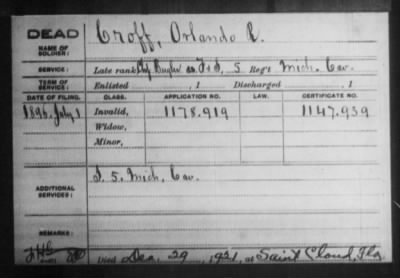 DEAD
NAME OF SOLDIER:
Croff, Orlando C.
SERVICE:
Late rank Chf Bugler co. F & S, 5 Reg't Mich. Cav.
TERM OF SERVICE:
Enlisted , 1 Discharged , 1
DATE OF FILING. CLASS. APPLICATION NO. LAW. CERTIFICATE NO.
1896, July 1 Invalid, 1178.919 1147.939
Widow,
Minor,
ADDITIONAL SERVICES:
I. 5. Mich. Cav.
REMARKS:
Died Dec. 29, 1921, at Saint Cloud, Fla